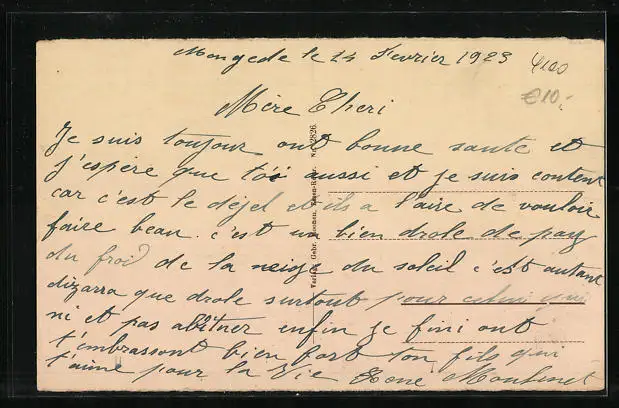 Mengede le 14 Fevrier 1923
4100
€10,-
Mère Cheri
Je suis toujour ont bonne santé et
j'espère que toi aussi et je suis content
car c'est le dégel et il a l'aire de vouloir
faire beau. c'est un bien drole de pay
du froid de la neige du soleil c'est autant
bizarra que drole surtout pour celui qui
ni et pas abituer enfin je fini ont
t'embrassont bien fort ton fils qui
t'aime pour la vie
Verlag Gebr. Essen-Ruhr. No. 2826